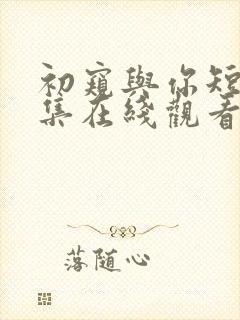 初窺與你短
集在綫觀看
落随心